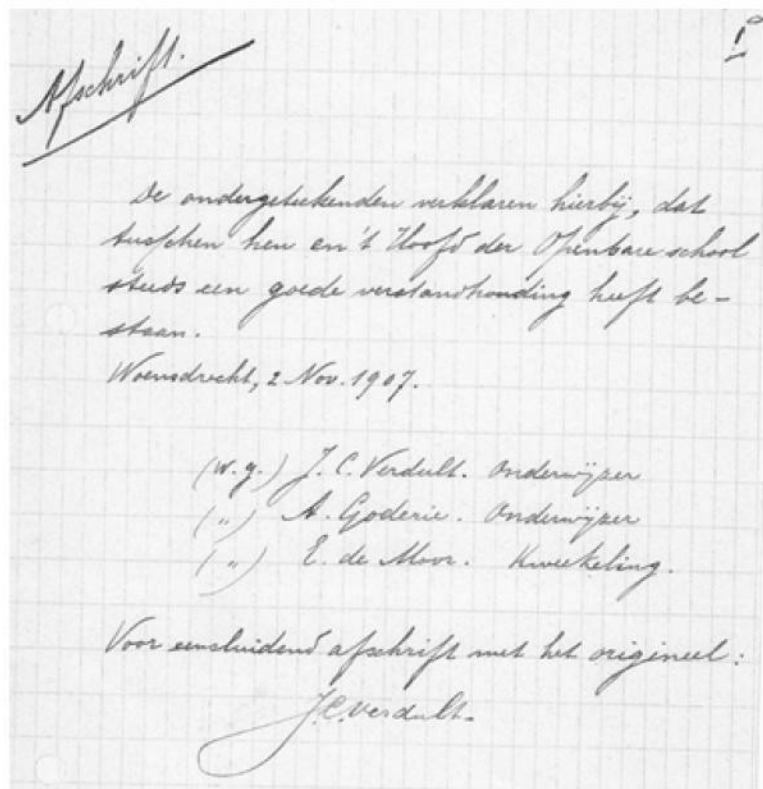 Afschrift.
De ondergeteekenden verklaren hierbij, dat
tusschen hen en 't Hoofd der Openbare school
steeds een goede verstandhouding heeft be-
staan.
Woensdrecht, 2 Nov. 1907.
(w.g.) J. C. Verdult. Onderwijzer
( „ ) A. Goderie. Onderwijzer
( „ ) E. de Moor. Kweekeling.
Voor eensluidend afschrift met het origineel:
J.C. Verdult.